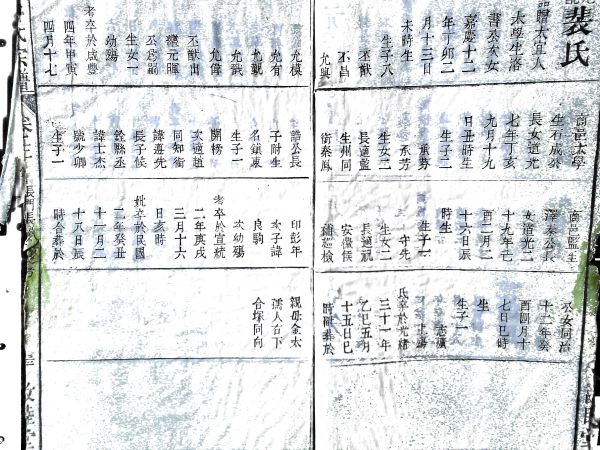 裴氏
誥贈太宜人
太學生洛
書公次女
嘉慶十二
年丁卯二
月十三日
未時生
生子八
丕猷
丕昌
允興
允模
允有
允觀
允戩
允偉
丕猷出
繼元暉
丕為嗣
生女一
幼殤
考卒於咸豐
四年甲寅
四月十七
商邑太學
生石成公
長女道光
七年丁亥
九月十九
日丑時生
生子二
承芬
承芳
生女二
長適監
生州同
銜秦鳳
誥公長
子附生
名鎮東
生子一
開榜
次適趙
同知銜
諱遵先
長子候
銓縣丞
諱士杰
號少卿
生子一
商邑監生
澤泰公長
女道光二
十九年己
酉二月二
十六日辰
時生
生子一
守先
生女二
長適阮
安徽候
補巡檢
印彭年
次子諱
良駒
次幼殤
考卒於宣統
二年庚戌
三月十六
日亥時
妣卒於民國
二年癸丑
十一月二
十八日辰
時合葬於
丞女同治
十二年癸
酉四月十
七日巳時
生
生子一
志廣
氏卒於光緒
三十一年
乙巳五月
十五日巳
時附葬於
親母金太
孺人右下
合塚同向